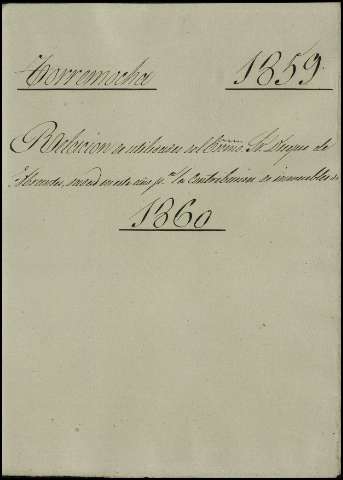 Torremocha 1859.
Relacion de utilidades del Excmo. Sr. Duque de
Abrantes, dada en este año pª. la Contribucion de inmuebles de
1860